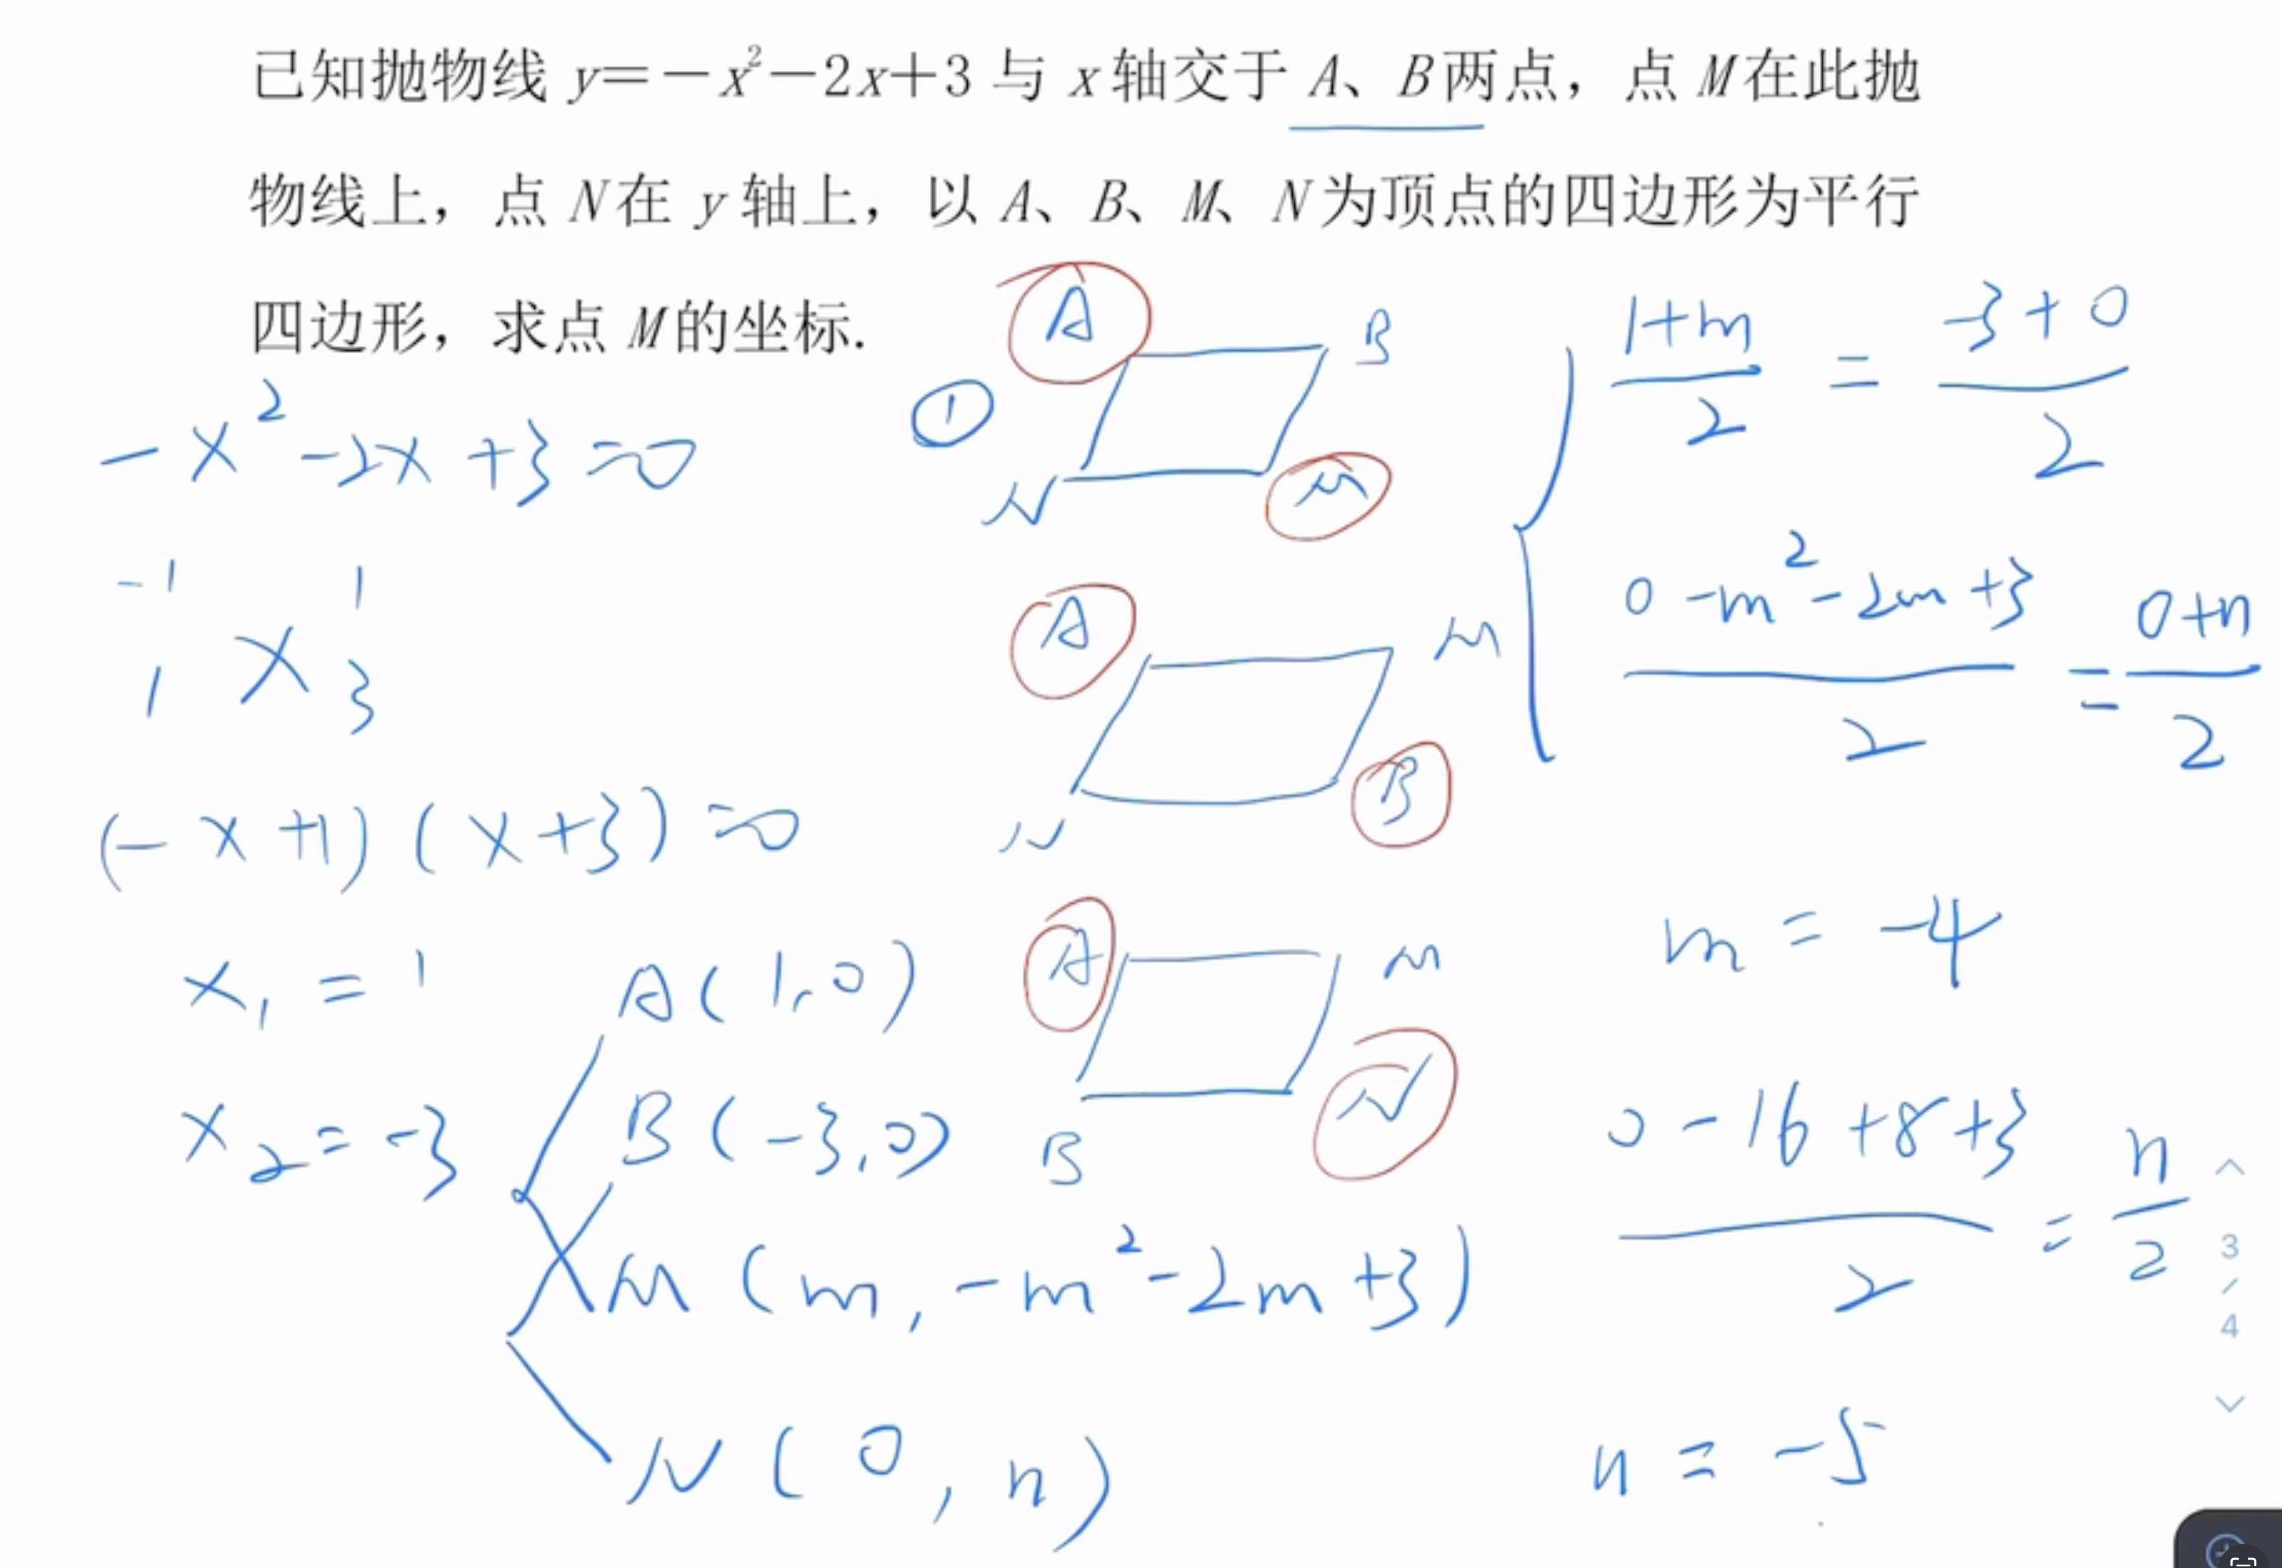 已知抛物线 y=-x²-2x+3 与 x 轴交于 A、B两点，点 M在此抛
物线上，点 N在 y 轴上，以 A、B、M、N为顶点的四边形为平行
四边形，求点 M的坐标.
-x²-2x+3=0
-1 1
1 3
(-x+1)(x+3)=0
x₁=1
x₂=-3
A(1,0)
B(-3,0)
M(m,-m²-2m+3)
N(0,n)
①
A B
N M
A M
N B
A M
B N
(1+m)/2 = (-3+0)/2
(0-m²-2m+3)/2 = (0+n)/2
m=-4
(0-16+8+3)/2 = n/2
n=-5
3
/
4